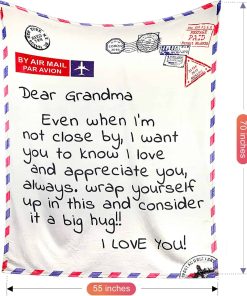 BY AIR MAIL
PAR AVION
PAID
Dear Grandma
Even when i'm
not close by, I want
you to know I love
and appreciate you,
always. wrap yourself
up in this and consider
it a big hug!!
I LOVE YOU!
70 inches
55 inches